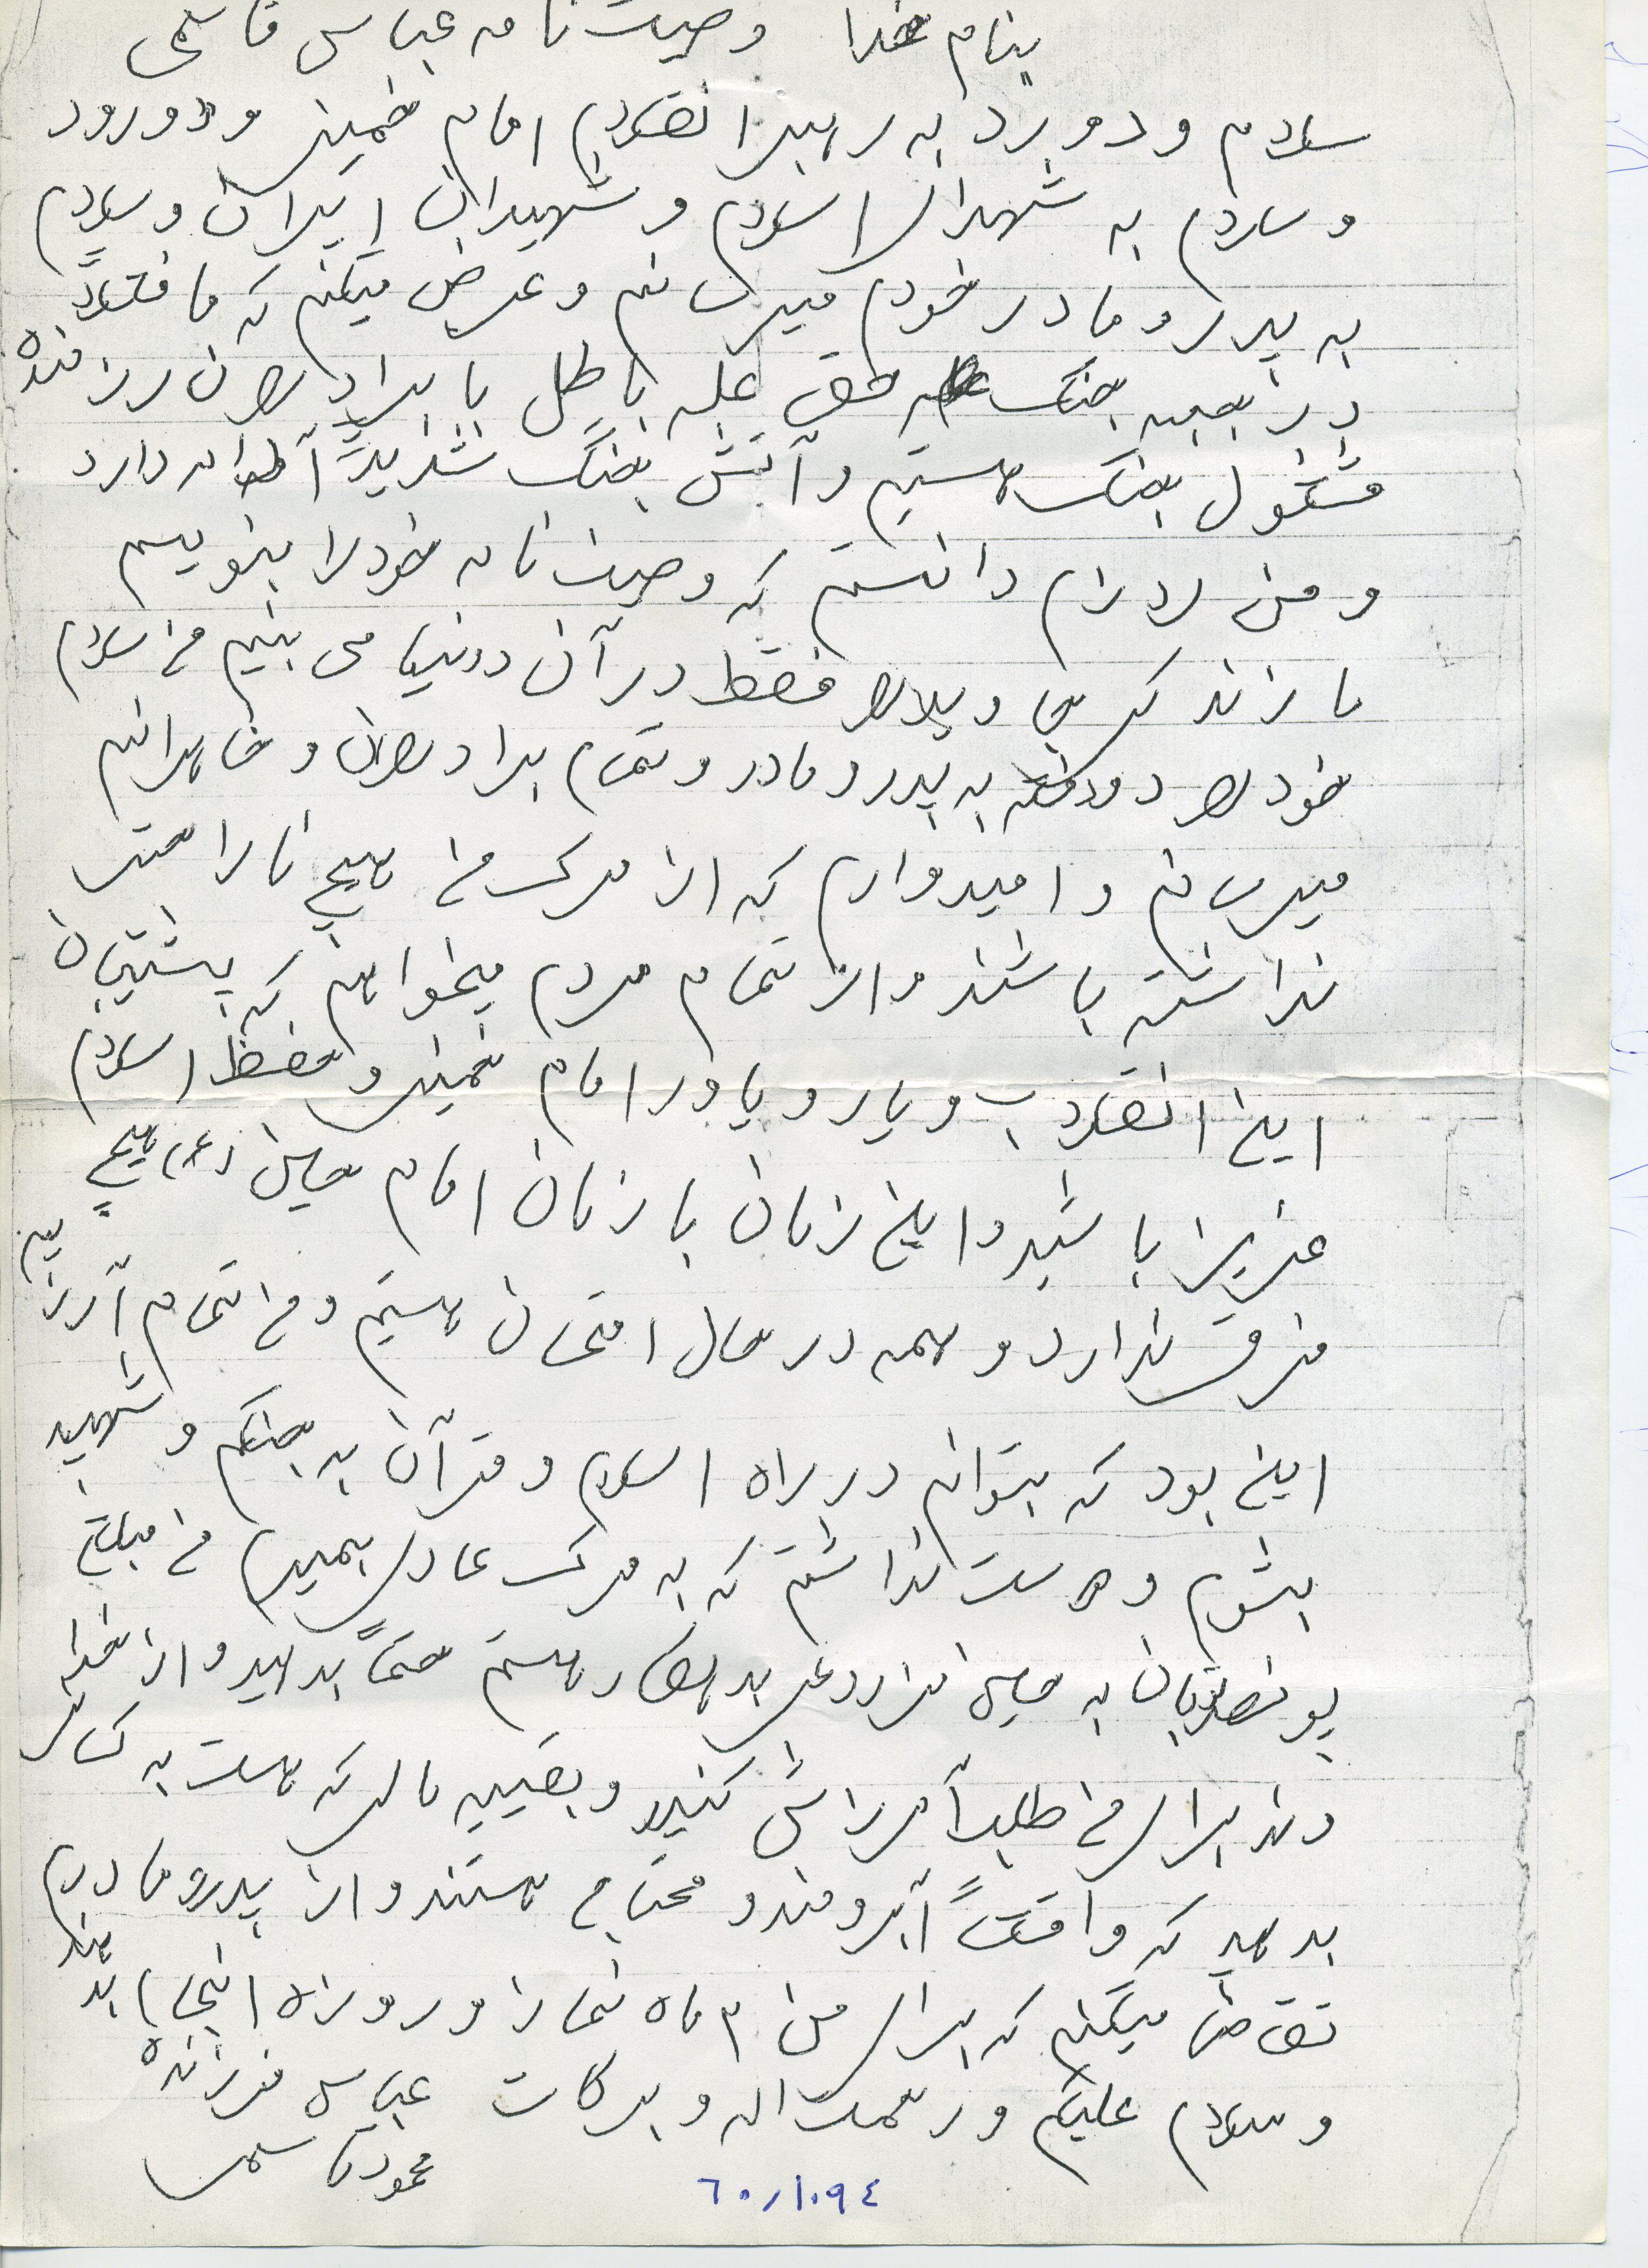 بنام خدا وصیت نامه عباس قاسمی
سلام و درود به رهبر انقلاب امام خمینی و درود
و سلام به شهدای اسلام و شهیدان ایران و سلام
به پدر و مادر خودم میرسانم و عرض میکنم که ما فعلاً
در جبهه جنگ حق علیه باطل با برادران رزمنده
مشغول جنگ هستیم و آتش جنگ شدیداً ادامه دارد
و من لازم دانستم که وصیت نامه خود را بنویسم
ما زندگی را فقط در آن دنیا می بینیم من سلام
خود را به پدر و مادر و تمام برادران و خاهرانم
میرسانم و امیدوارم که از مرگ من هیچ ناراحتی
نداشته باشند و از تمام مردم میخواهم که پشتیبان
این انقلاب و یار و یاور امام خمینی و حفظ اسلام
عزیز باشید و این زمان با زمان امام حسین (ع) هیچ
فرقی ندارد و همه در حال امتحان هستیم و من تمام آرزویم
این بود که بتوانم در راه اسلام و قرآن به جنگم و شهید
بشوم و دوست نداشتم که به مرگ عادی بمیرم من مبلغ
تومان به حسین بدهکار هستم حتماً بدهید و از خدا
برای من طلب آمرزش کنید و بقیه مالی که هست به کسانی
بدهید که واقعاً آبرومند و محتاج هستند و از پدر و مادرم
تقاضا میکنم که برای من ۲ ماه نماز و روزه انجام بدهند
و سلام علیکم و رحمت اله و برکات عباس فرزنده
محمود قاسمی
٦٠/١٠٩٤